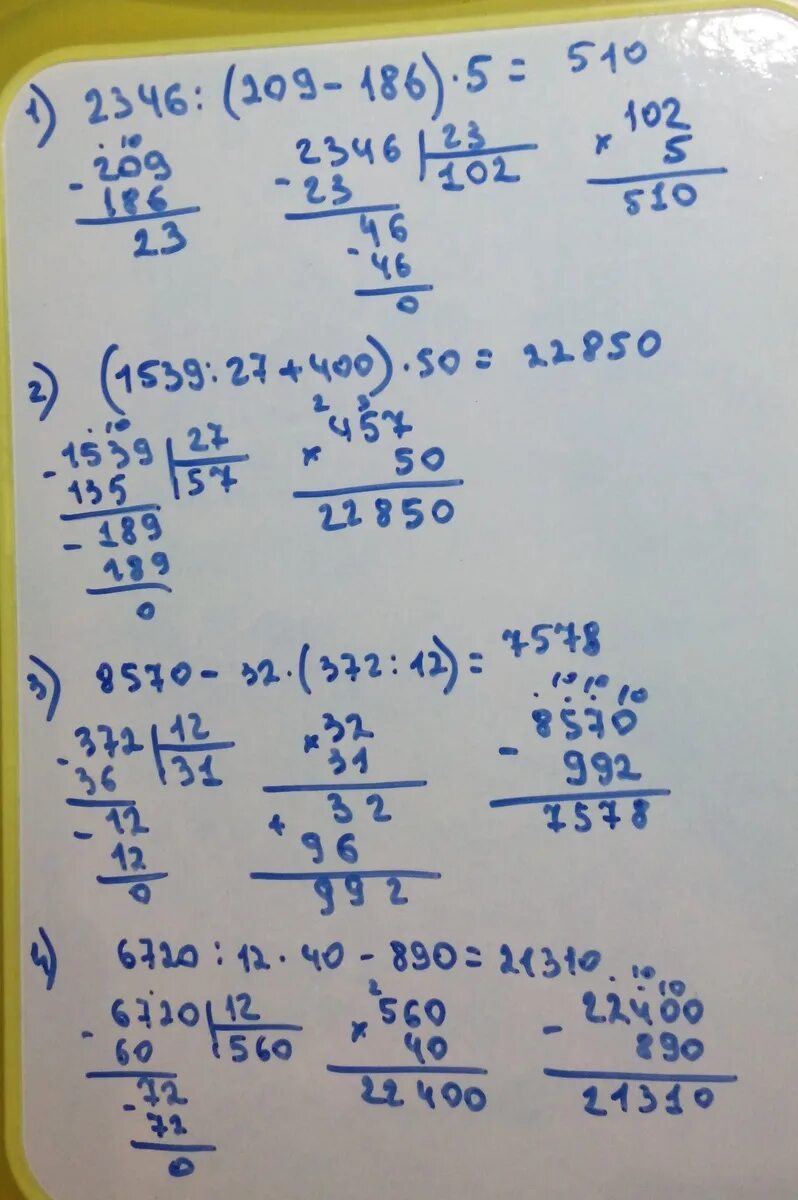 1) 2346 : (209 - 186) · 5 = 510
· 10
- 209
186
23
- 2346 | 23
23 | 102
46
- 46
0
102
× 5
510
2) (1539 : 27 + 400) · 50 = 22850
· 10
- 1539 | 27
135 | 57
- 189
189
0
2 3
457
× 50
22850
3) 8570 - 32 · (372 : 12) = 7578
- 372 | 12
36 | 31
- 12
12
0
× 32
31
+ 32
96
992
· 10 10 10
- 8570
992
7578
4) 6720 : 12 · 40 - 890 = 21310
- 6720 | 12
60 | 560
- 72
72
0
2
× 560
40
22400
· 10 10
- 22400
890
21310